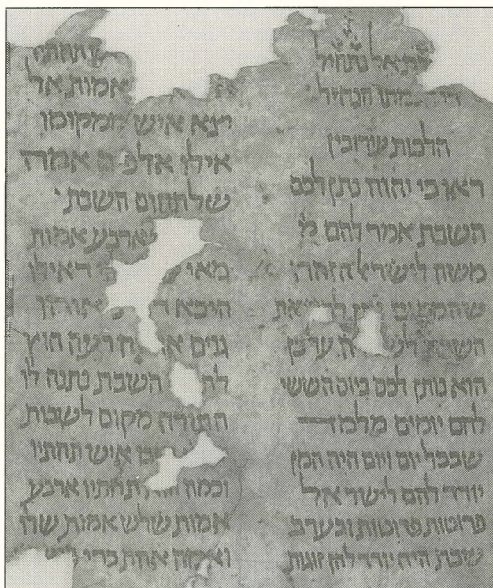 אל נתחיל
הלכות עירובין
ראו כי יהוה נתן לכם
השבת אמר להם מ
משה לישראל הזהרו
שהמקום
השבת
הוא נותן לכם ביום הששי
לחם יומים מלמד
שבכל יום ויום היה המן
יורד להם לישראל
פרוסות פרוסות ובערב
שבת היה יורד להן זוגות
תחתיו
אמות אל
יצא איש ממקומו
אילו אלפים אמה
של תחום השבת
וארבע אמות
מאי דאילו
היכא
חוץ
השבת נתנה לו
התורה מקום לשבות
איש תחתיו
וכמה תחתיו ארבע
אמות שלש אמות שלו
ואמה אחת כדי